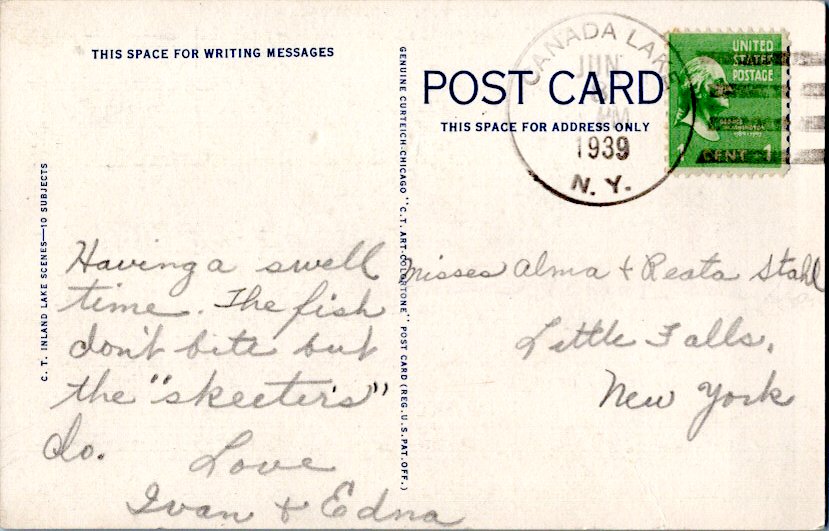 THIS SPACE FOR WRITING MESSAGES
C. T. INLAND LAKE SCENES—10 SUBJECTS
Having a swell
time. The fish
don't bite but
the "skeeters"
do.
Love
Ivan & Edna
GENUINE CURTEICH-CHICAGO "C. T. ART-COLORTONE" POST CARD (REG. U.S. PAT. OFF.)
POST CARD
THIS SPACE FOR ADDRESS ONLY
CANADA LAKE
JUN
PM
1939
N. Y.
UNITED
STATES
POSTAGE
GEORGE
WASHINGTON
1 CENT 1
Misses Alma & Reata Stahl
Little Falls,
New York